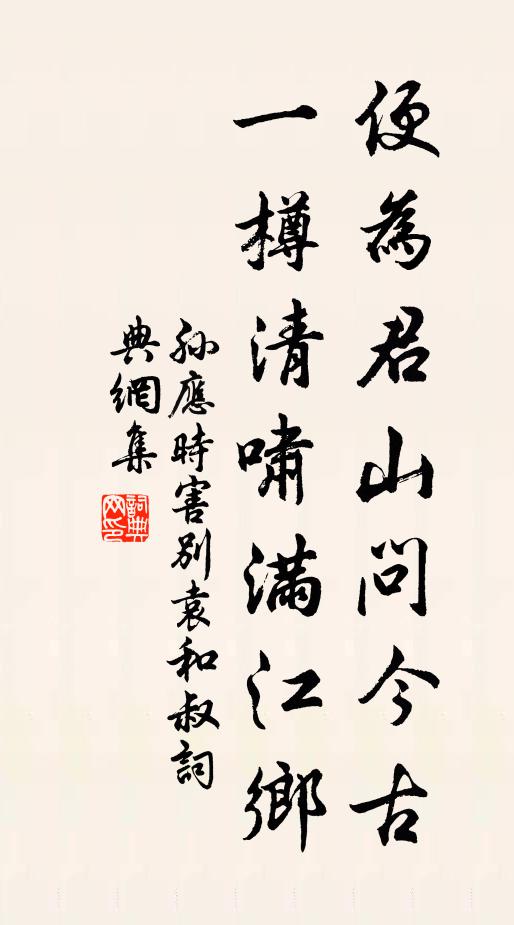 便為君山問今古
一樽清嘯滿江鄉
孫應時害別袁和叔詞
典網集
詞典網印